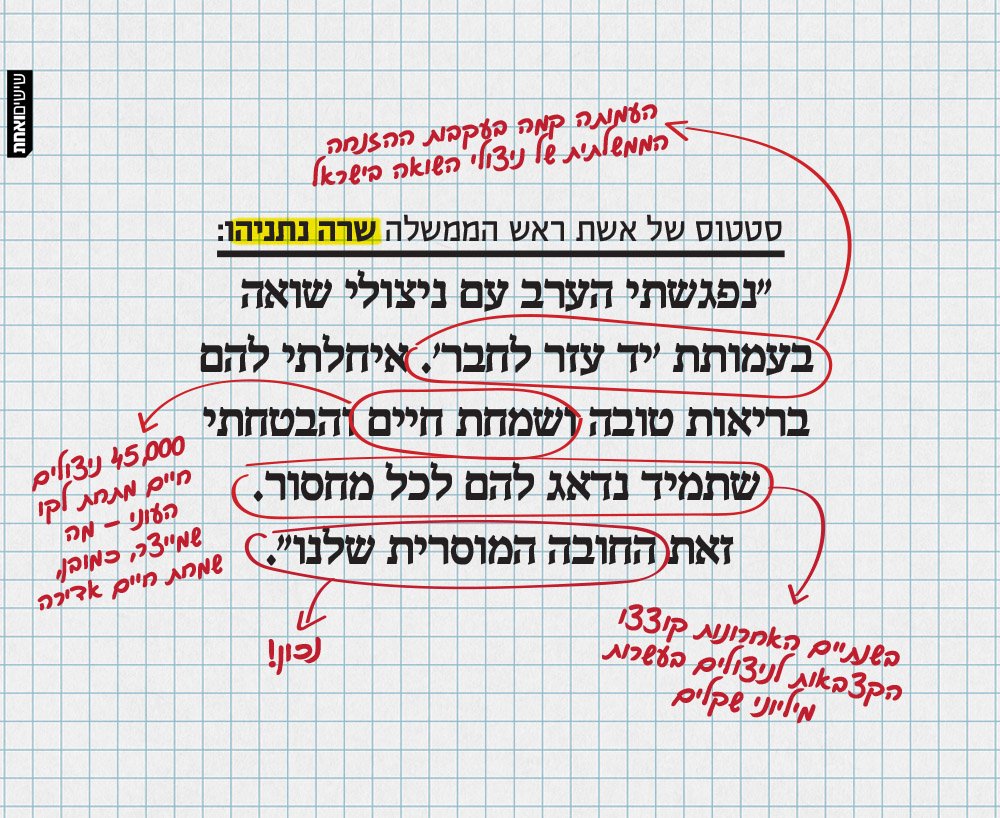 שישים ואחת
העמותה קמה בעקבות ההזנחה
הממשלתית של ניצולי השואה בישראל
סטטוס של אשת ראש הממשלה שרה נתניהו:
"נפגשתי הערב עם ניצולי שואה
בעמותת 'יד עזר לחבר'. איחלתי להם
בריאות טובה ושמחת חיים והבטחתי
שתמיד נדאג להם לכל מחסור.
זאת החובה המוסרית שלנו".
45,000 ניצולים
חיים מתחת לקו
העוני – מה
שמייצר, כמובן,
שמחת חיים אדירה
נכון!
בשנתיים האחרונות קוצצו
הקצבאות לניצולים בעשרות
מיליוני שקלים